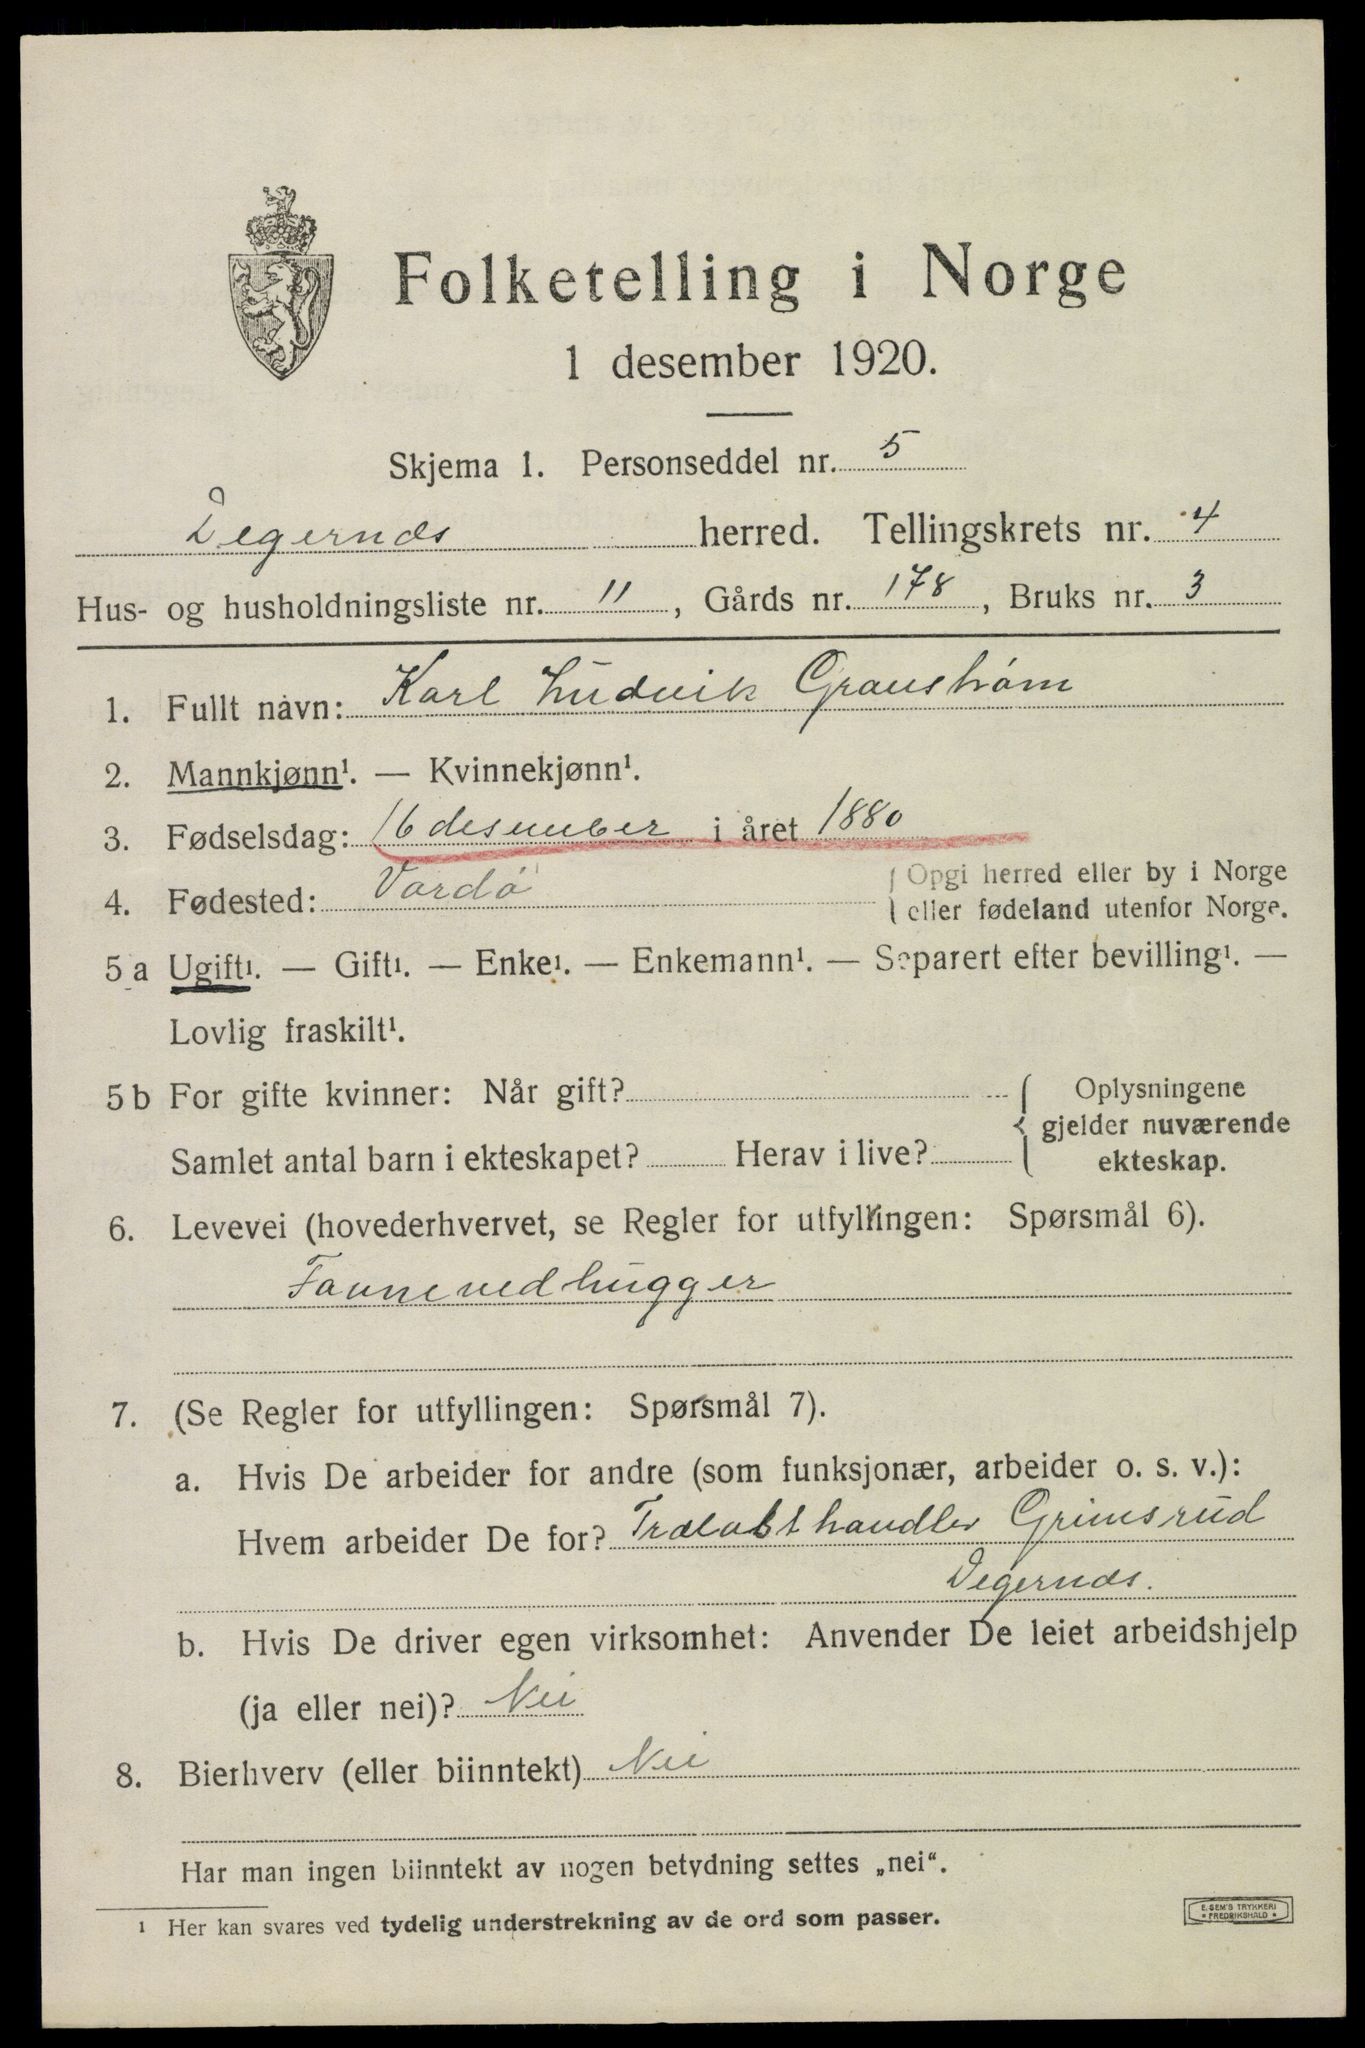 Folketelling i Norge
1 desember 1920.
Skjema 1. Personseddel nr. 5
Degernæs herred. Tellingskrets nr. 4
Hus- og husholdningsliste nr. 11, Gårds nr. 178, Bruks nr. 3
1. Fullt navn: Karl Ludvik Granstrøm
2. Mannkjønn¹. — Kvinnekjønn¹.
3. Fødselsdag: 16 desember i året 1880
4. Fødested: Vardø { Opgi herred eller by i Norge
eller fødeland utenfor Norge.
5 a Ugift¹. — Gift¹. — Enke¹. — Enkemann¹. — Separert efter bevilling¹. —
Lovlig fraskilt¹.
5 b For gifte kvinner: Når gift? { Oplysningene
gjelder nuværende
Samlet antal barn i ekteskapet? Herav i live? ekteskap.
6. Levevei (hovederhvervet, se Regler for utfyllingen: Spørsmål 6).
Favnevedhugger
7. (Se Regler for utfyllingen: Spørsmål 7).
a. Hvis De arbeider for andre (som funksjonær, arbeider o. s. v.):
Hvem arbeider De for? Trælasthandler Grimsrud
Degernæs.
b. Hvis De driver egen virksomhet: Anvender De leiet arbeidshjelp
(ja eller nei)? Nei
8. Bierhverv (eller biinntekt) Nei
Har man ingen biinntekt av nogen betydning settes „nei“.
¹ Her kan svares ved tydelig understrekning av de ord som passer.
E. SEM'S TRYKKERI
* FREDRIKSHALD *